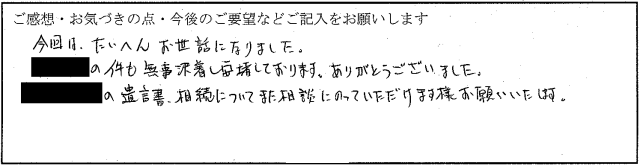 ご感想・お気づきの点・今後のご要望などご記入をお願いします
今回は、たいへんお世話になりました。
の件も無事決着し安堵しております。ありがとうございました。
の遺言書、相続についてまた相談にのっていただけます様お願いいたします。